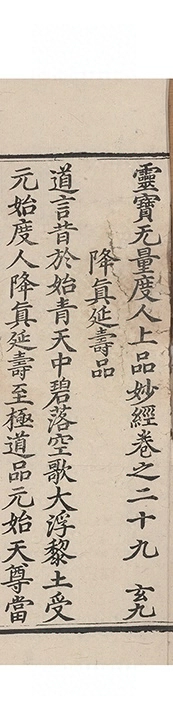 靈寶无量度人上品妙經卷之二十九 玄九
降真延壽品
道言昔於始青天中碧落空歌大浮黎土受
元始度人降真延壽至極道品元始天尊當